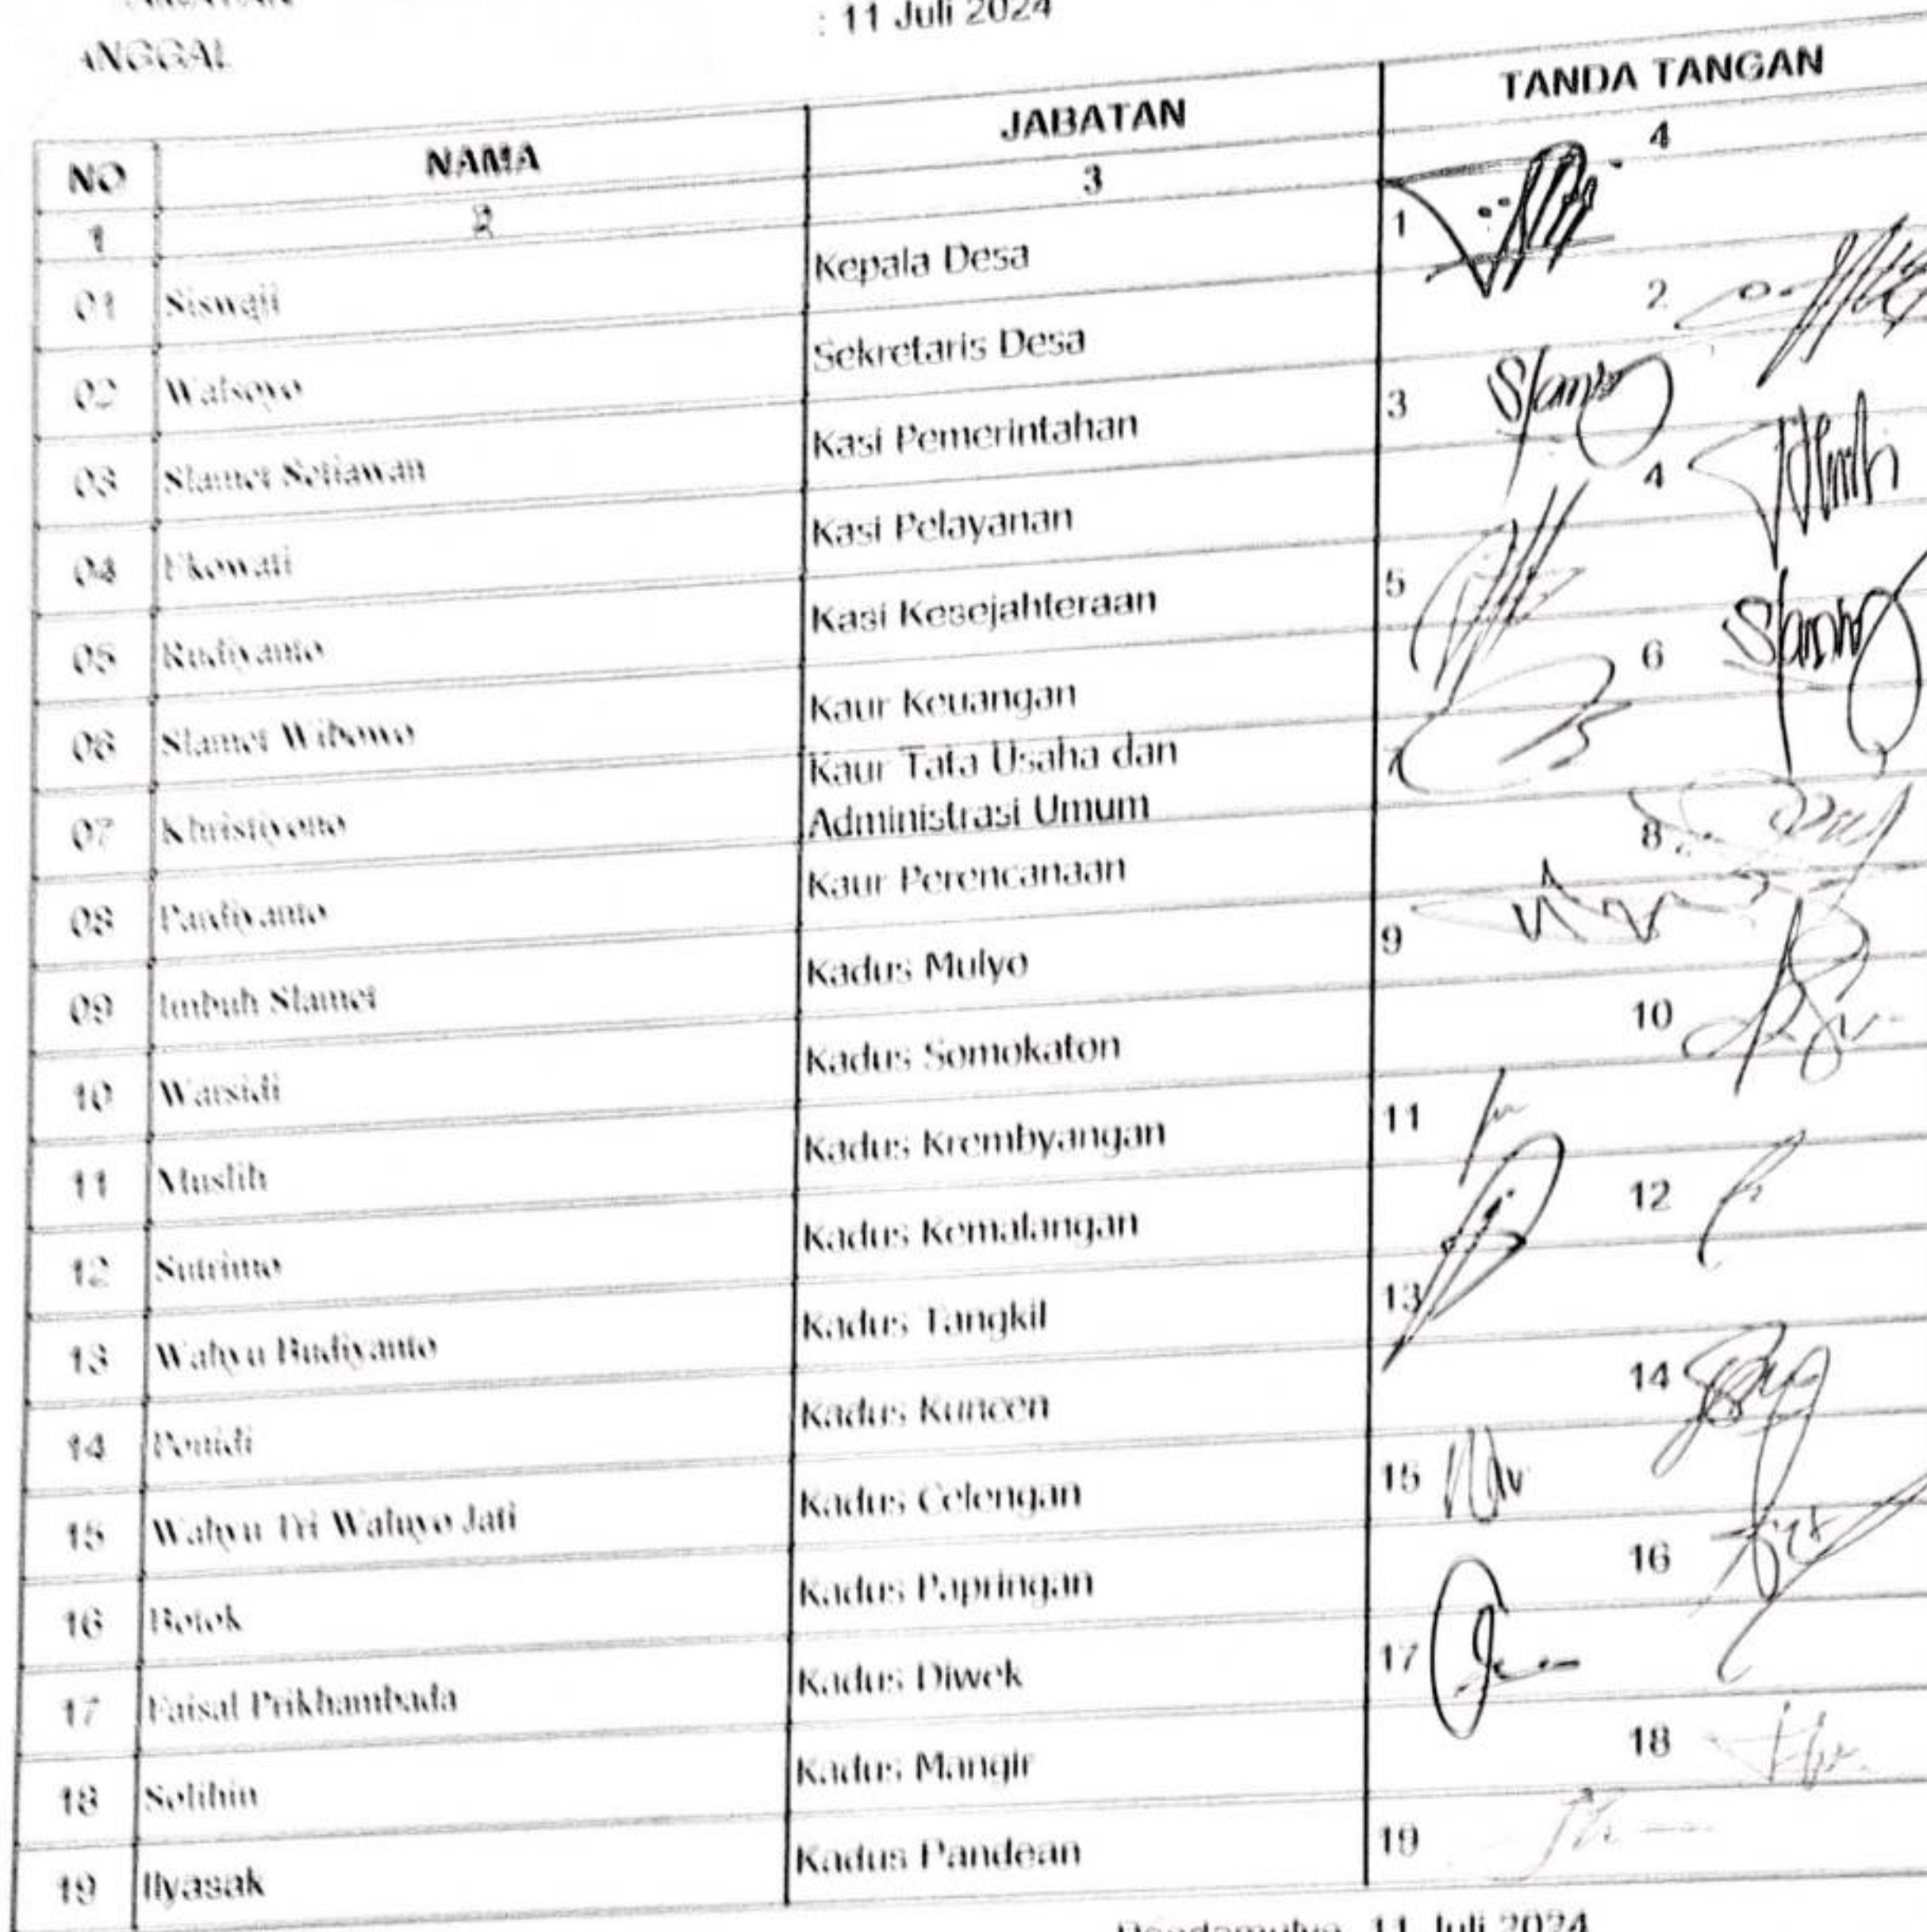 : 11 Juli 2024
NO NAMA JABATAN TANDA TANGAN
1 2 3 4
01 Siswaji Kepala Desa 1
02 Sekretaris Desa 2
03 Slamet Setiawan Kasi Pemerintahan 3
04 Ekowati Kasi Pelayanan 4
05 Kasi Kesejahteraan 5
06 Slamet Wibowo Kaur Keuangan 6
07 Khristiyono Kaur Tata Usaha dan
Administrasi Umum 7
08 Pardiyanto Kaur Perencanaan 8
09 Imbuh Slamet Kadus Mulyo 9
10 Warsidi Kadus Somokaton 10
11 Muslih Kadus Krembyangan 11
12 Sutrimo Kadus Kemalangan 12
13 Wahyu Budiyanto Kadus Tangkil 13
14 Ponidi Kadus Kuncen 14
15 Wahyu Tri Waluyo Jati Kadus Celengan 15
16 Botok Kadus Papringan 16
17 Faisal Prikhambada Kadus Diwek 17
18 Solihin Kadus Mangir 18
19 Ilyasak Kadus Pandean 19
11 Juli 2024